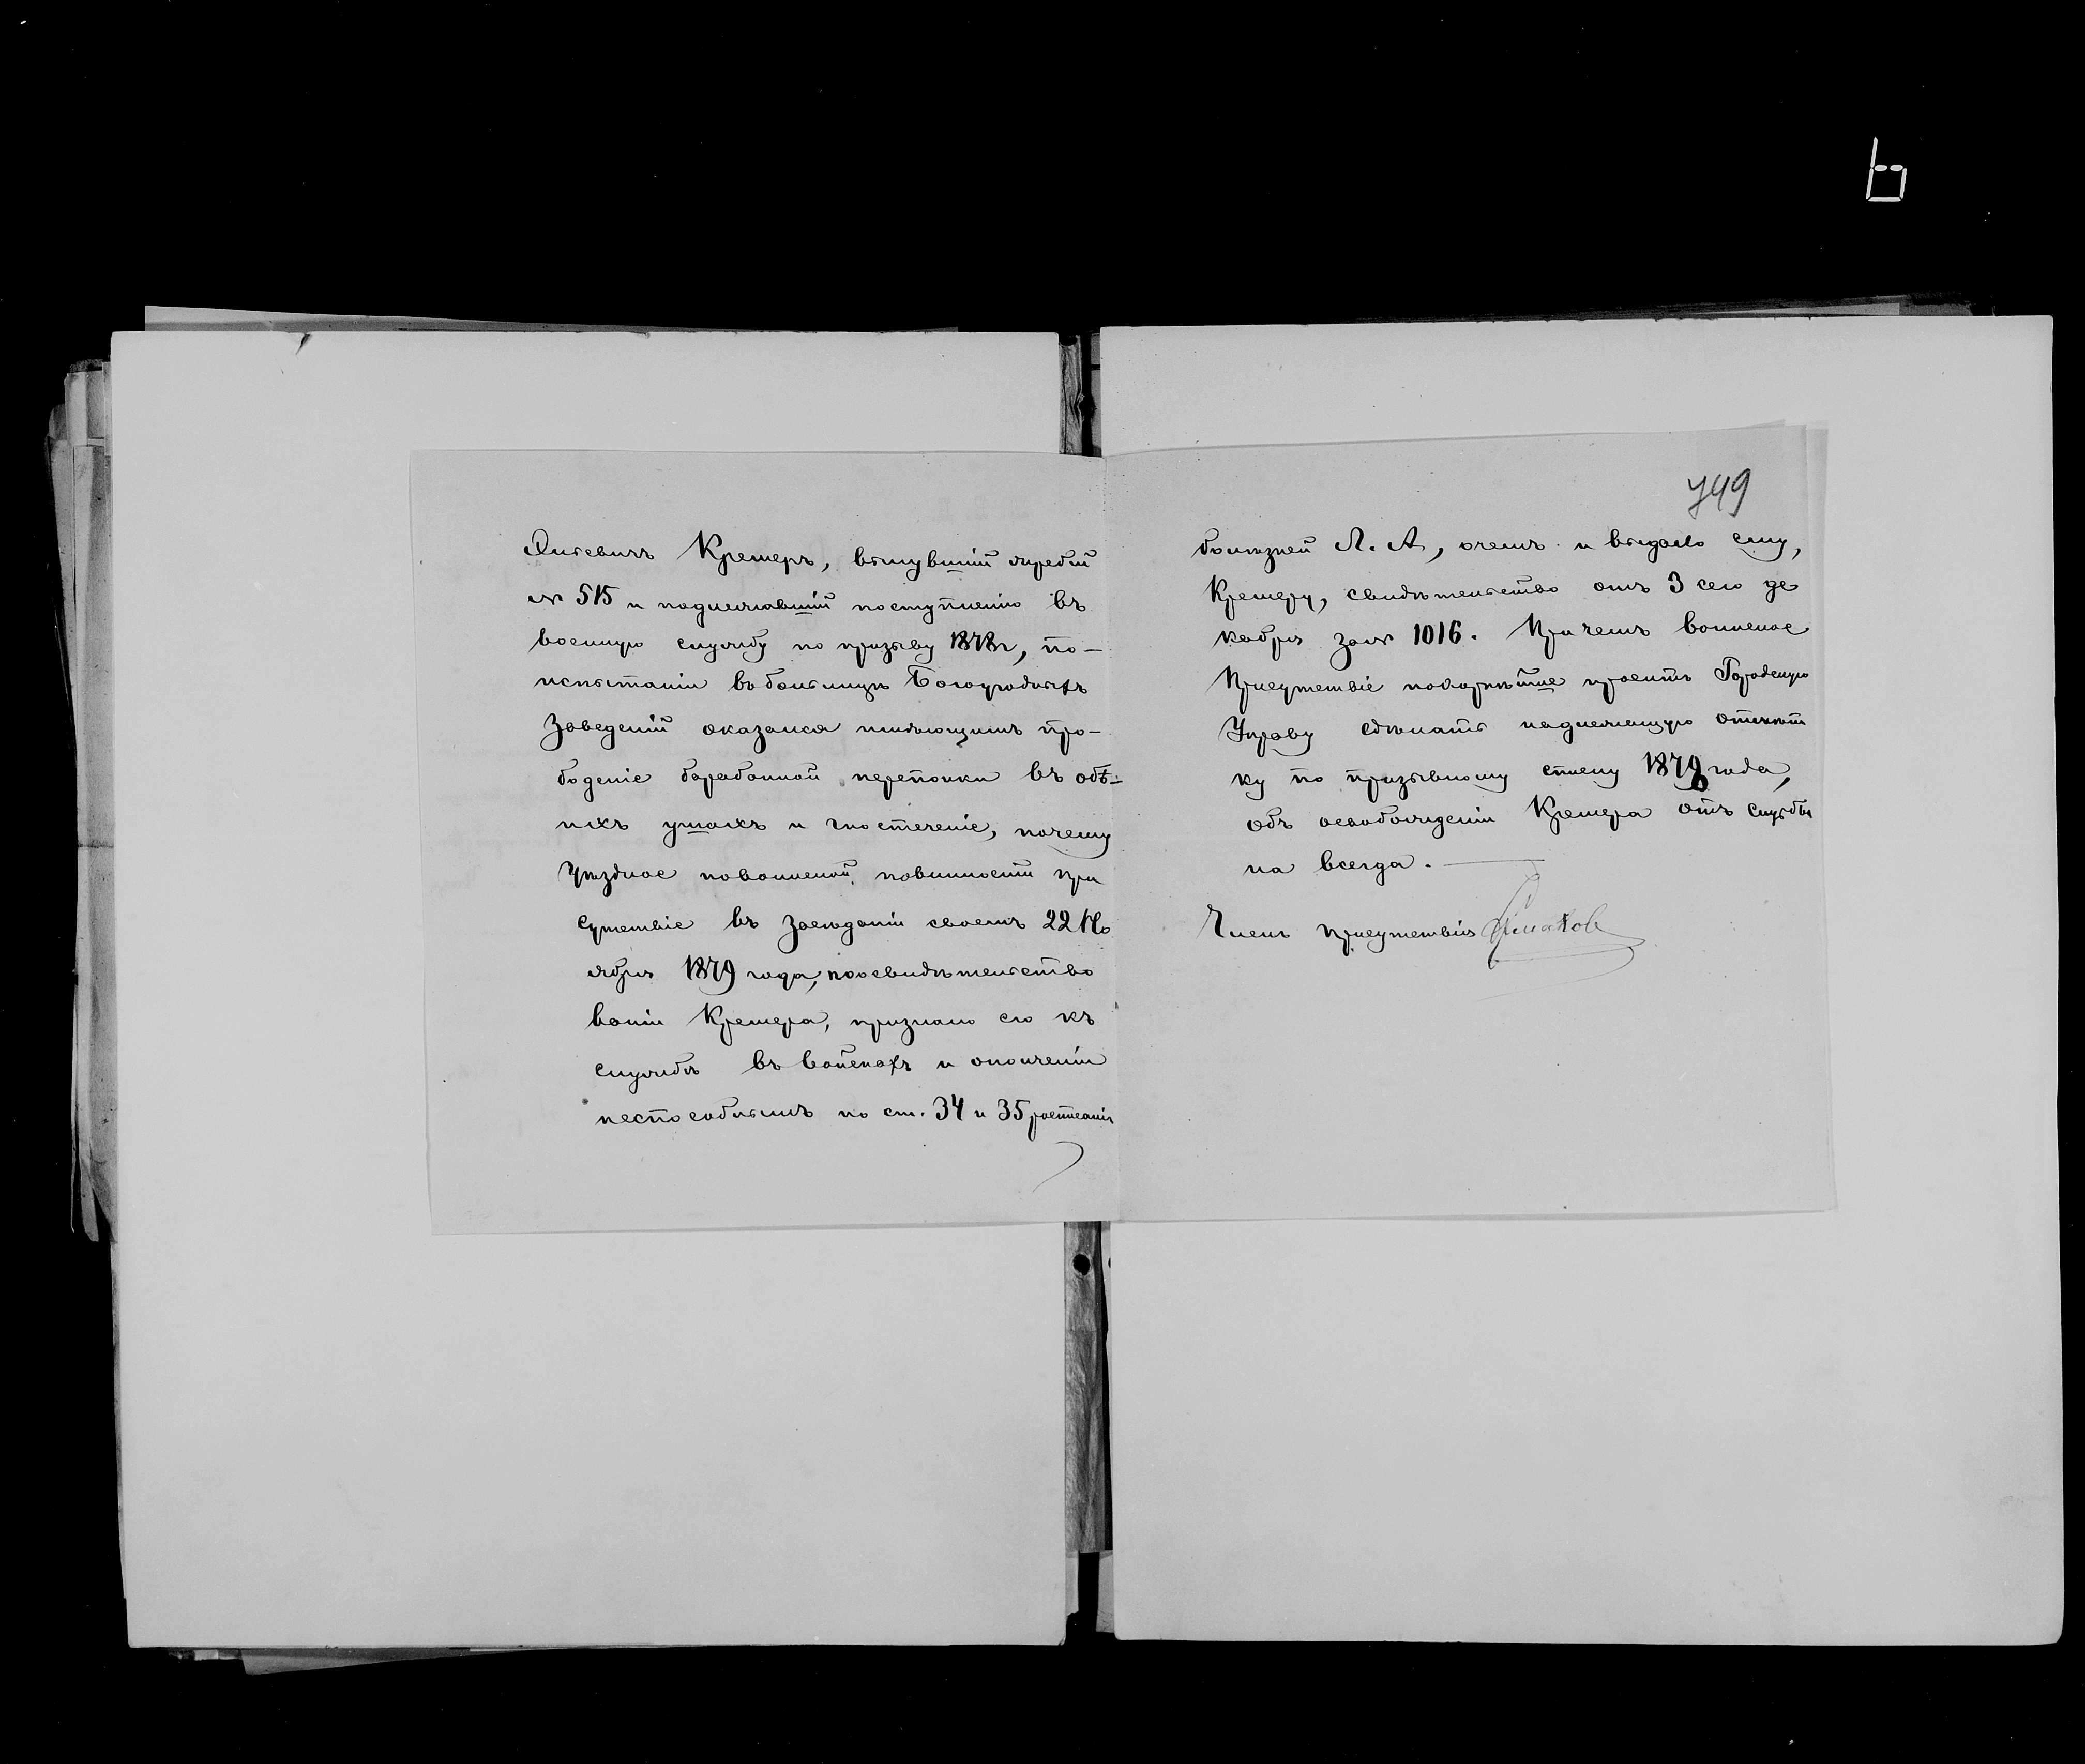 749
Кремеръ, вынувшій жребій
№ 515 и подлежавшій поступленію въ
военную службу по призыву 1878 г, по-
испытаніи въ больницѣ Богоугодныхъ
Заведеній оказался имѣющимъ про-
боденіе барабанной перепонки въ обѣ-
ихъ ушахъ и гноетеченіе, почему
Уѣздное по воинской повинности при
сутствіе въ засѣданіи своемъ 22 Но
ября 1879 года, по освидѣтельство
ваніи Кремера, признало его къ
службѣ въ войскахъ и ополченіи
неспособнымъ по ст. 34 и 35 росписанія
болѣзней Л. А, о чемъ и выдало ему,
Кремеру, свидѣтельство отъ 3 сего де
кабря за № 1016. При чемъ воинское
Присутствіе покорнѣйше проситъ Городскую
Управу сдѣлать надлежащую отмѣт
ку по призывному списку 1878 года,
объ освобожденіи Кремера отъ службы
на всегда.
Членъ Присутствія